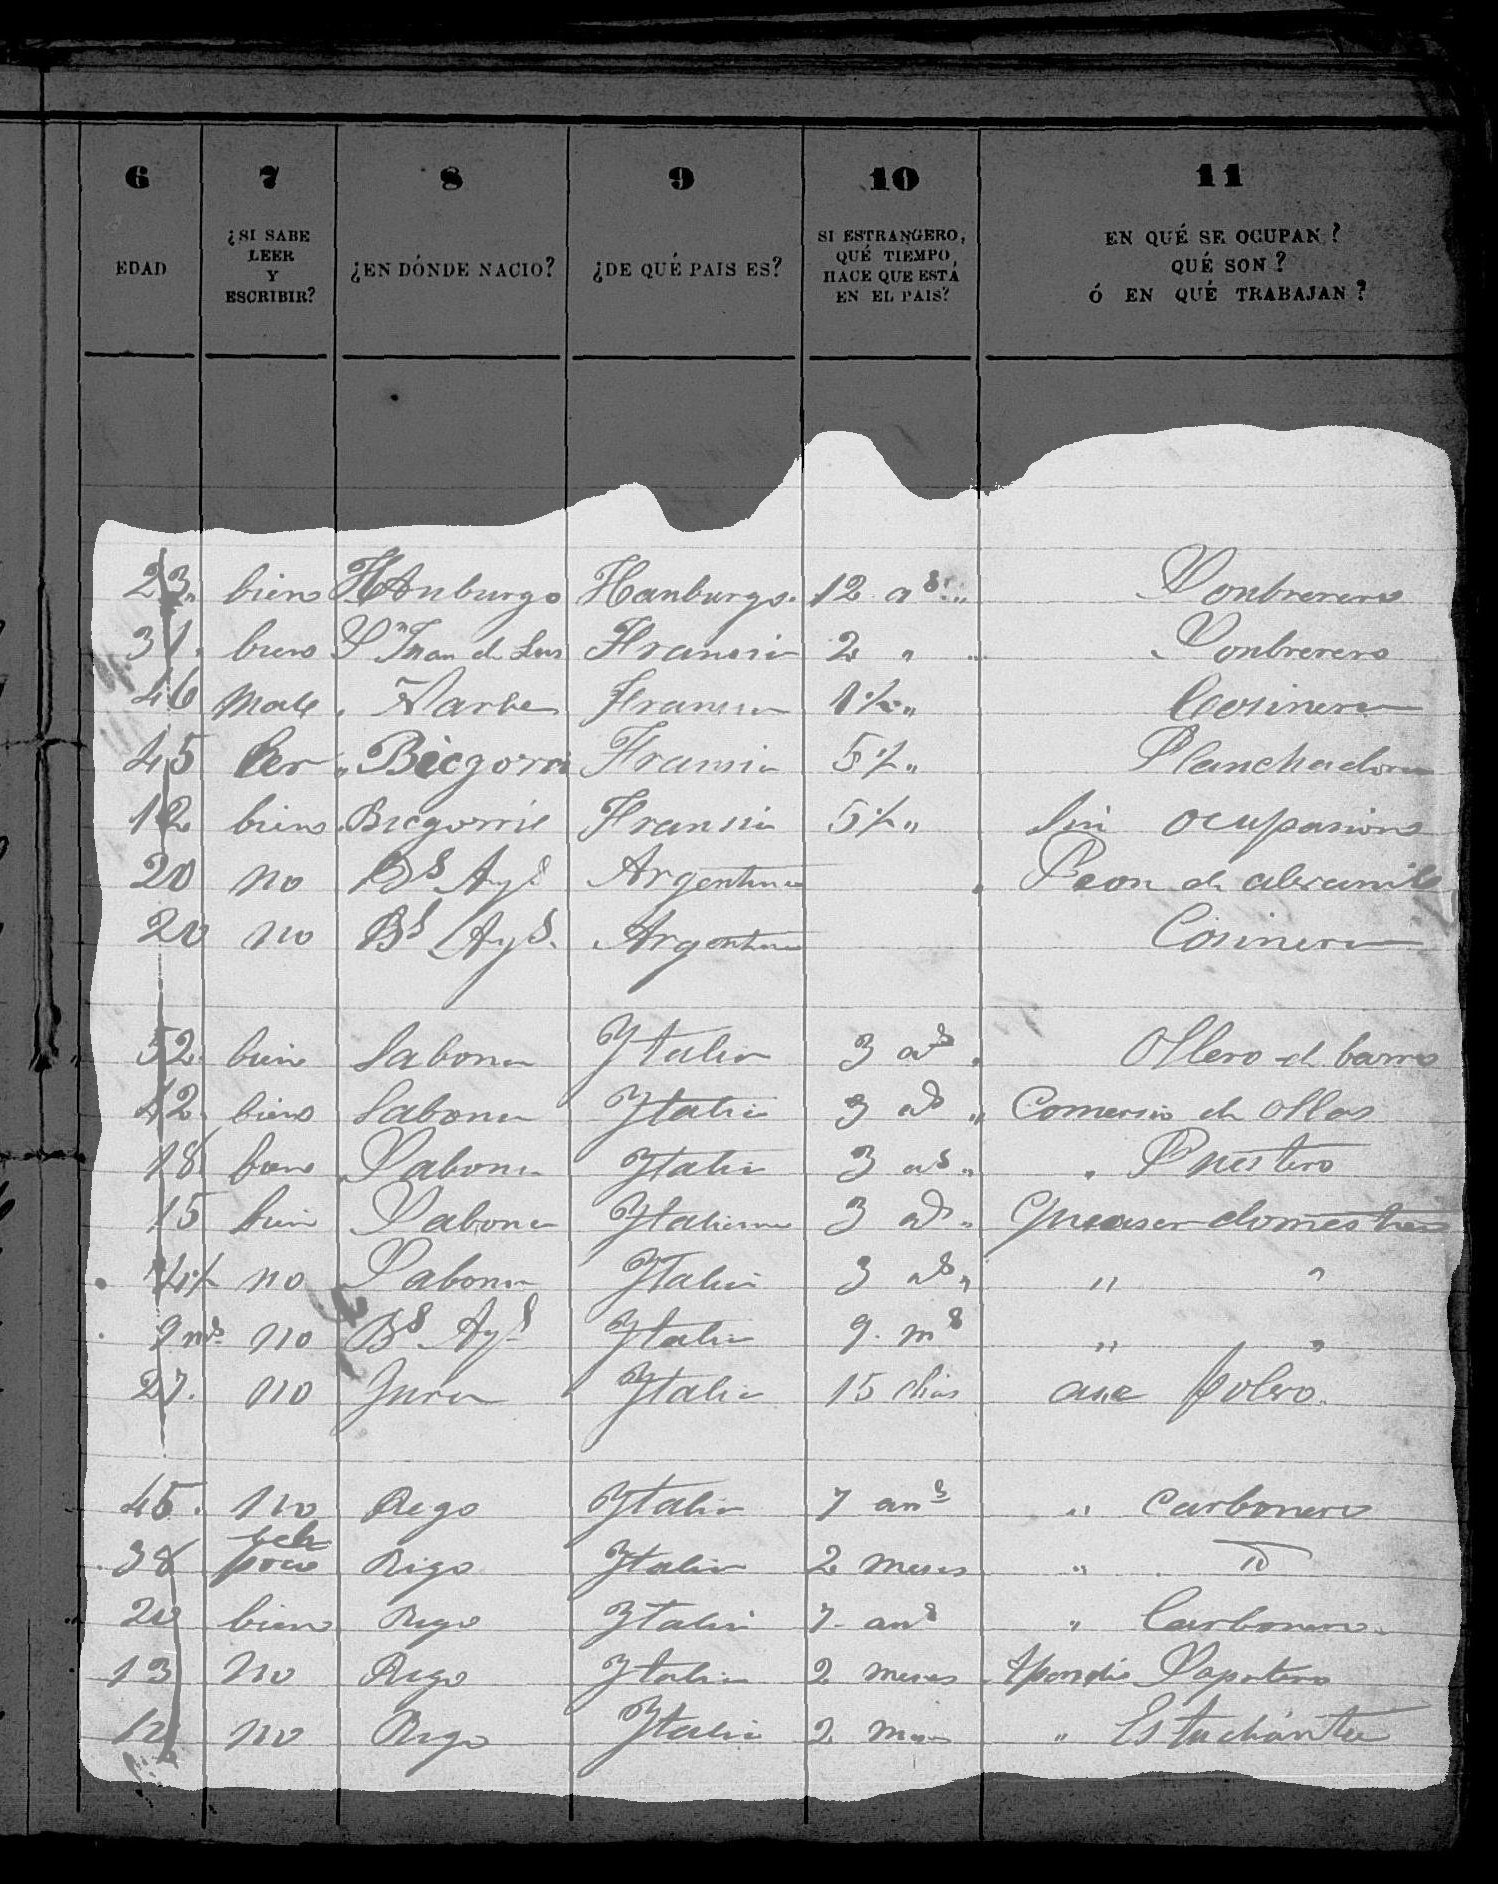 6 7 8 9 10 11
EDAD ¿SI SABE LEER Y ESCRIBIR? ¿EN DÓNDE NACIO? ¿DE QUÉ PAIS ES? SI ESTRANGERO, QUÉ TIEMPO, HACE QUE ESTÁ EN EL PAIS? EN QUÉ SE OCUPAN? QUÉ SON? Ó EN QUÉ TRABAJAN?
23. bien Hanburgo Hanburgo. 12 as. „ Sonbrerero
31. bien Sn Juan de Lus Francia 2 „ „ Sonbrerero
46 male Francia 1½ „ Cosinera
45 leer „ Biegorri Francia 5½ „ Planchadora
12 bien Biegorrie Francia 5½ „ Sin ocupasion
20 no Bs Ays Argentina Peon de
20 no Bs Ays. Argentina Cosinera
52. bien Sabona Ytalia 3 as „ Ollero de barro
42. bien Sabona Ytalia 3 as „ Comersio de ollas
18. bien Sabona Ytalia 3 as „ Puestero
15 bien Sabona Ytaliana 3 as „ domestico
no Sabona Ytalia 3 as „ „ „
9 ms no Bs Ays Ytalia 9. ms „ „
27. no Ytalia 15 dias
45. no Rego Ytalia 7 ans „ Carbonero
38 poco Rigo Ytalia 2 meses „ Id
20 bien Rigo Ytalia 7. ans „ Carbonero.
13 no Rigo Ytalia 2 meses Apendis Sapatero
12 no Rigo Ytalia 2 mes „ Estudiante